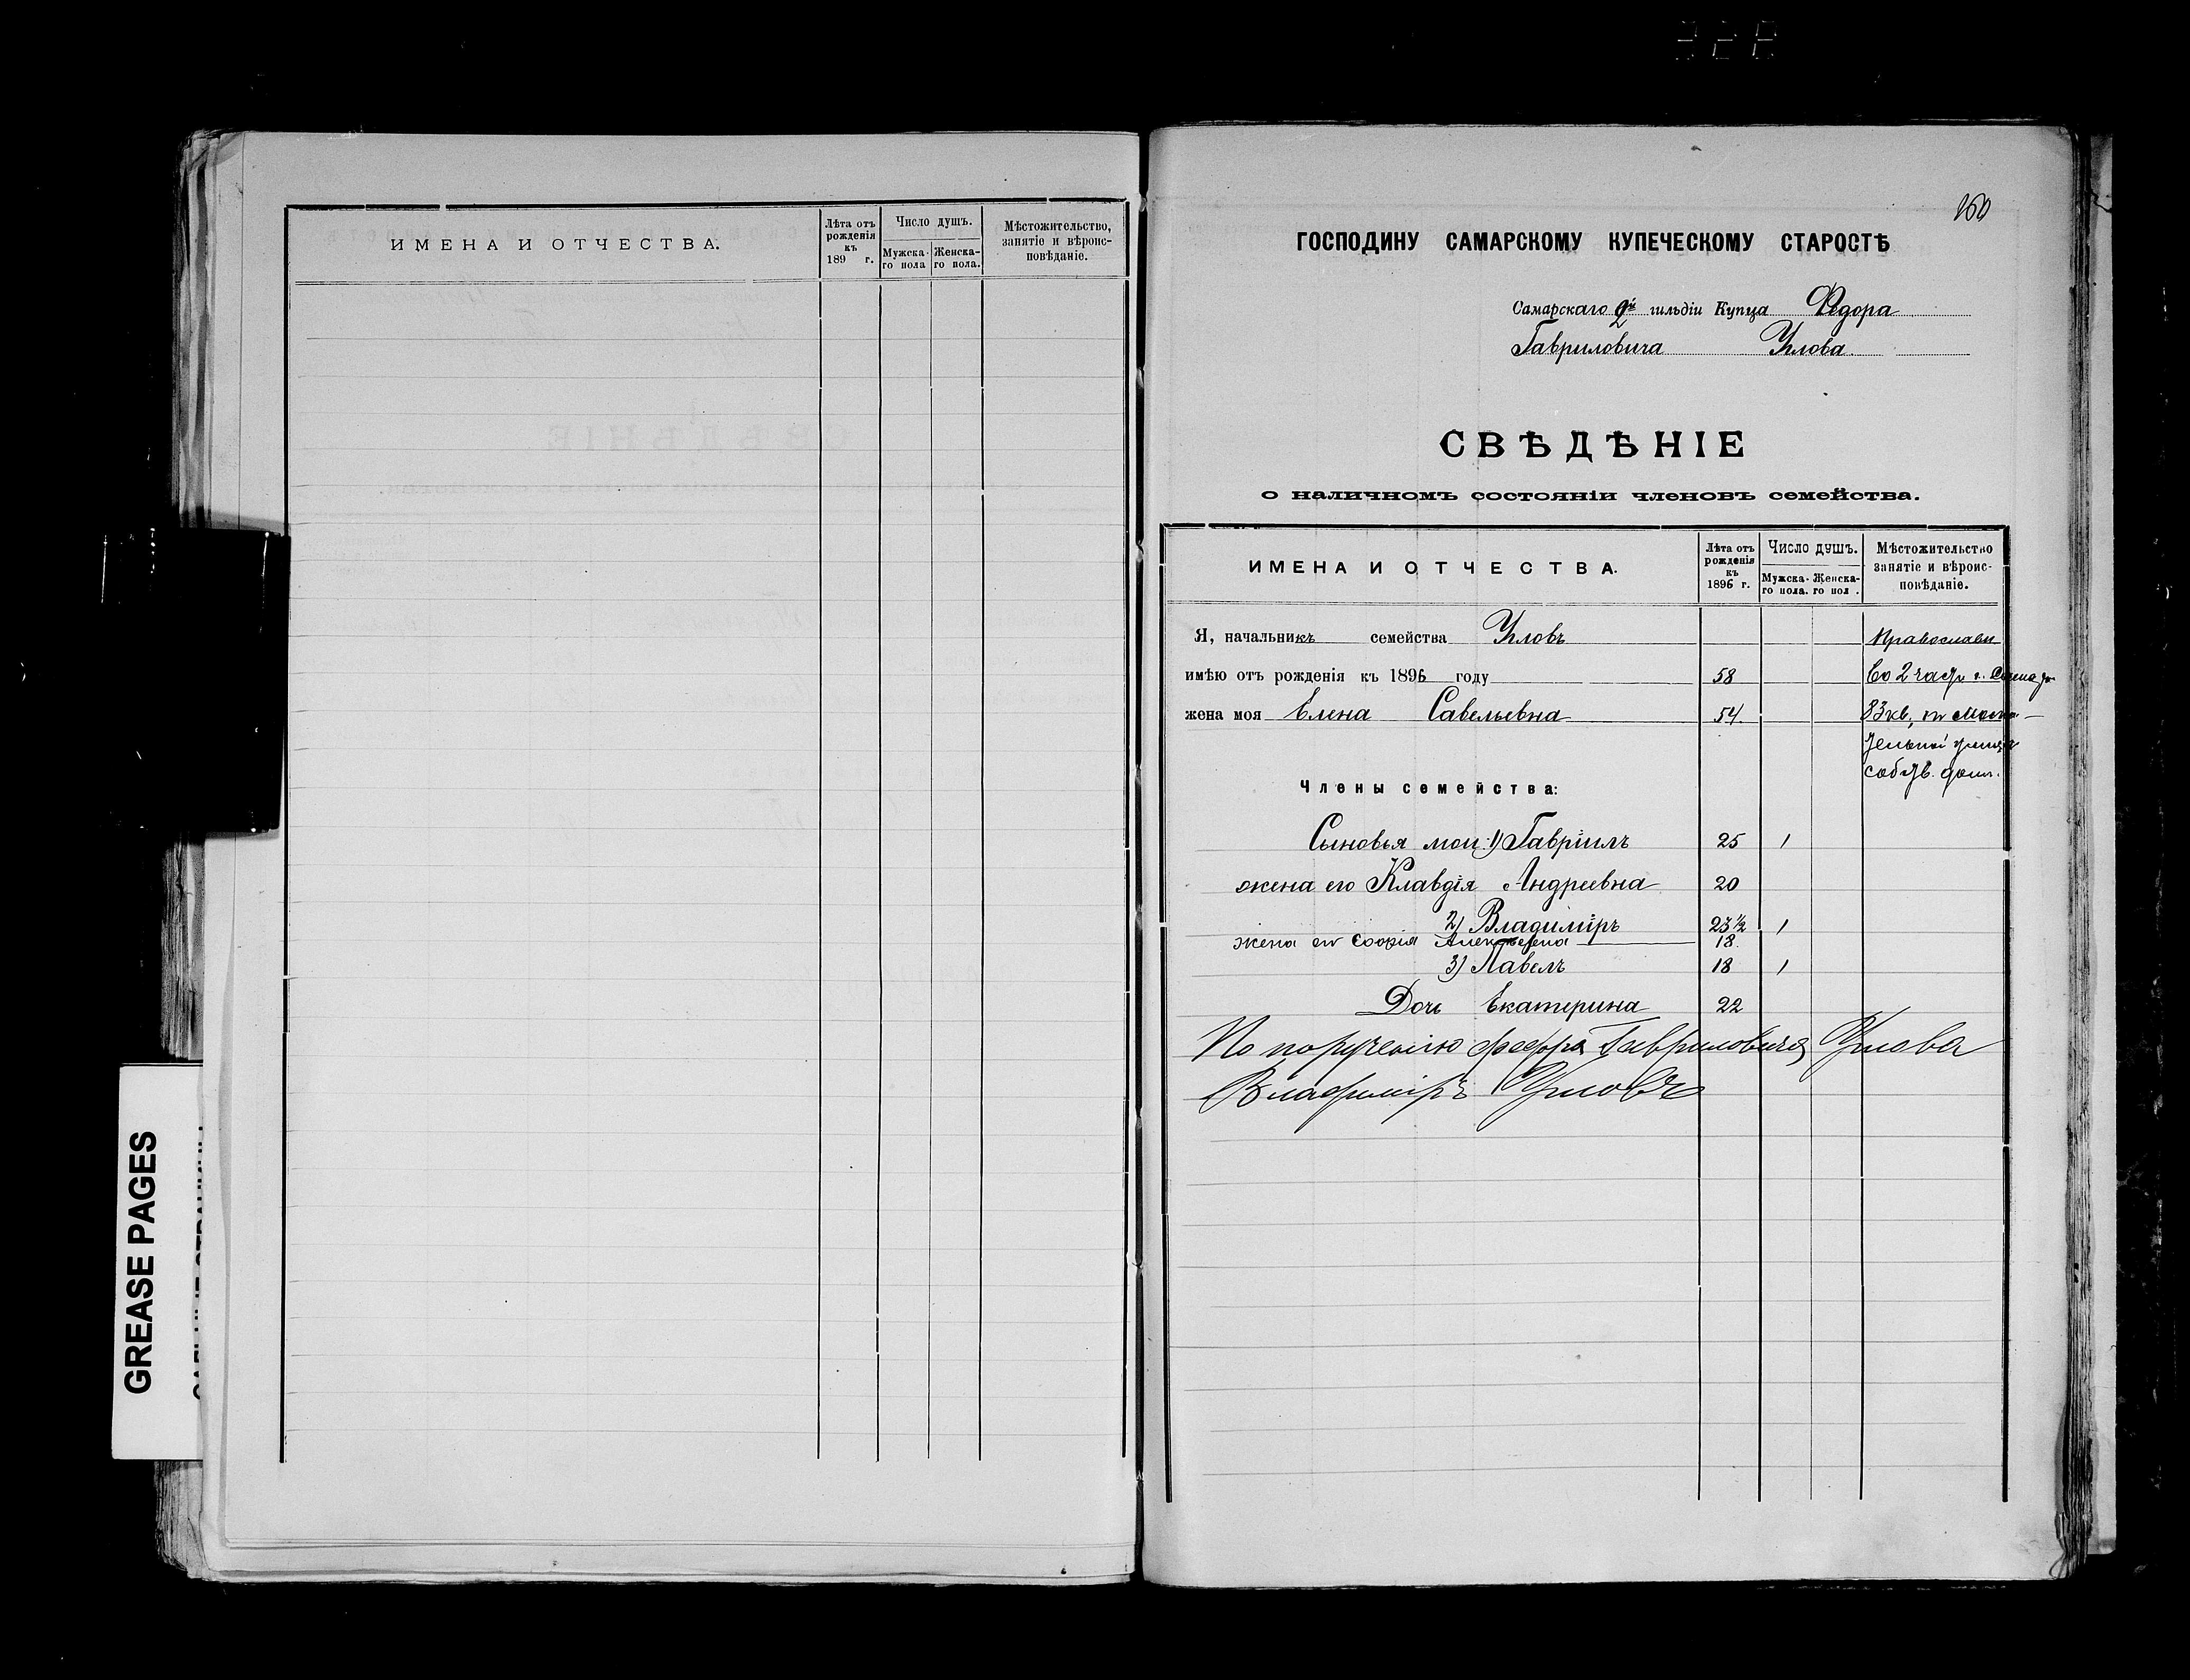 ИМЕНА И ОТЧЕСТВА.
Лѣта отъ рожденія къ 189 г.
Число душъ.
Мужска-го пола
Женска-го пола.
Мѣстожительство, занятіе и вѣроис-повѣданіе.
GREASE PAGES
160
ГОСПОДИНУ САМАРСКОМУ КУПЕЧЕСКОМУ СТАРОСТѢ
Самарскаго 2й гильдіи Купца Ѳедора
Гавриловича Углова
СВѢДѢНІЕ
о наличномъ состояніи членовъ семейства.
ИМЕНА И ОТЧЕСТВА.
Лѣта отъ рожденія къ 1896 г.
Число душъ.
Мужска-го пола.
Женска-го пол .
Мѣстожительство занятіе и вѣроис-повѣданіе.
Я, начальникъ семейства Угловъ Православн
имѣю отъ рожденія къ 1896 году 58 Во 2 части г.
жена моя Елена Савельевна 54. 83 кв,
собств. домъ.
Члены семейства:
Сыновья мои: 1) Гавріилъ 25 1
жена его Клавдія Андреевна 20
2) Владиміръ 23 1/2 1
жена ег Софія Алексѣевна 18.
3) Павелъ 18 1
Дочь Екатерина 22
По порученію Федора Гавриловича Углова
Владиміръ Угловъ